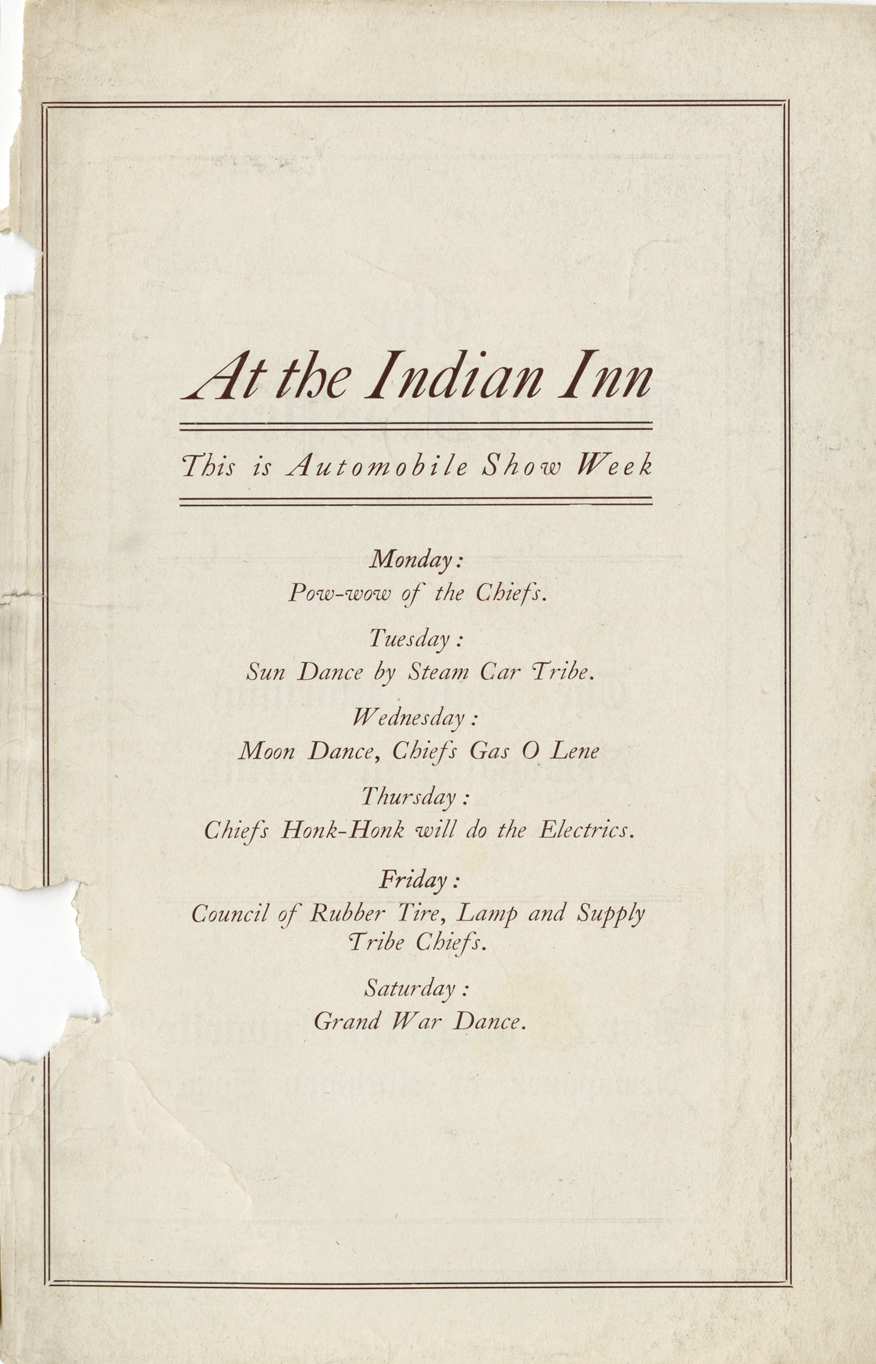 At the Indian Inn
This is Automobile Show Week
Monday:
Pow-wow of the Chiefs.
Tuesday:
Sun Dance by Steam Car Tribe.
Wednesday:
Moon Dance, Chiefs Gas O Lene
Thursday:
Chiefs Honk-Honk will do the Electrics.
Friday:
Council of Rubber Tire, Lamp and Supply
Tribe Chiefs.
Saturday:
Grand War Dance.